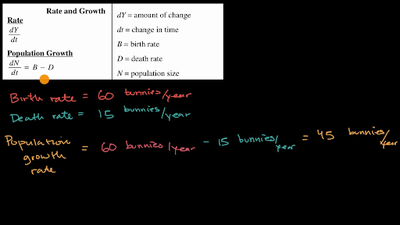 Rate and Growth
Rate
dY
dt
Population Growth
dN
dt = B − D
dY = amount of change
dt = change in time
B = birth rate
D = death rate
N = population size
Birth rate = 60 bunnies/year
Death rate = 15 bunnies/year
Population growth rate = 60 bunnies/year − 15 bunnies/year = 45 bunnies/year